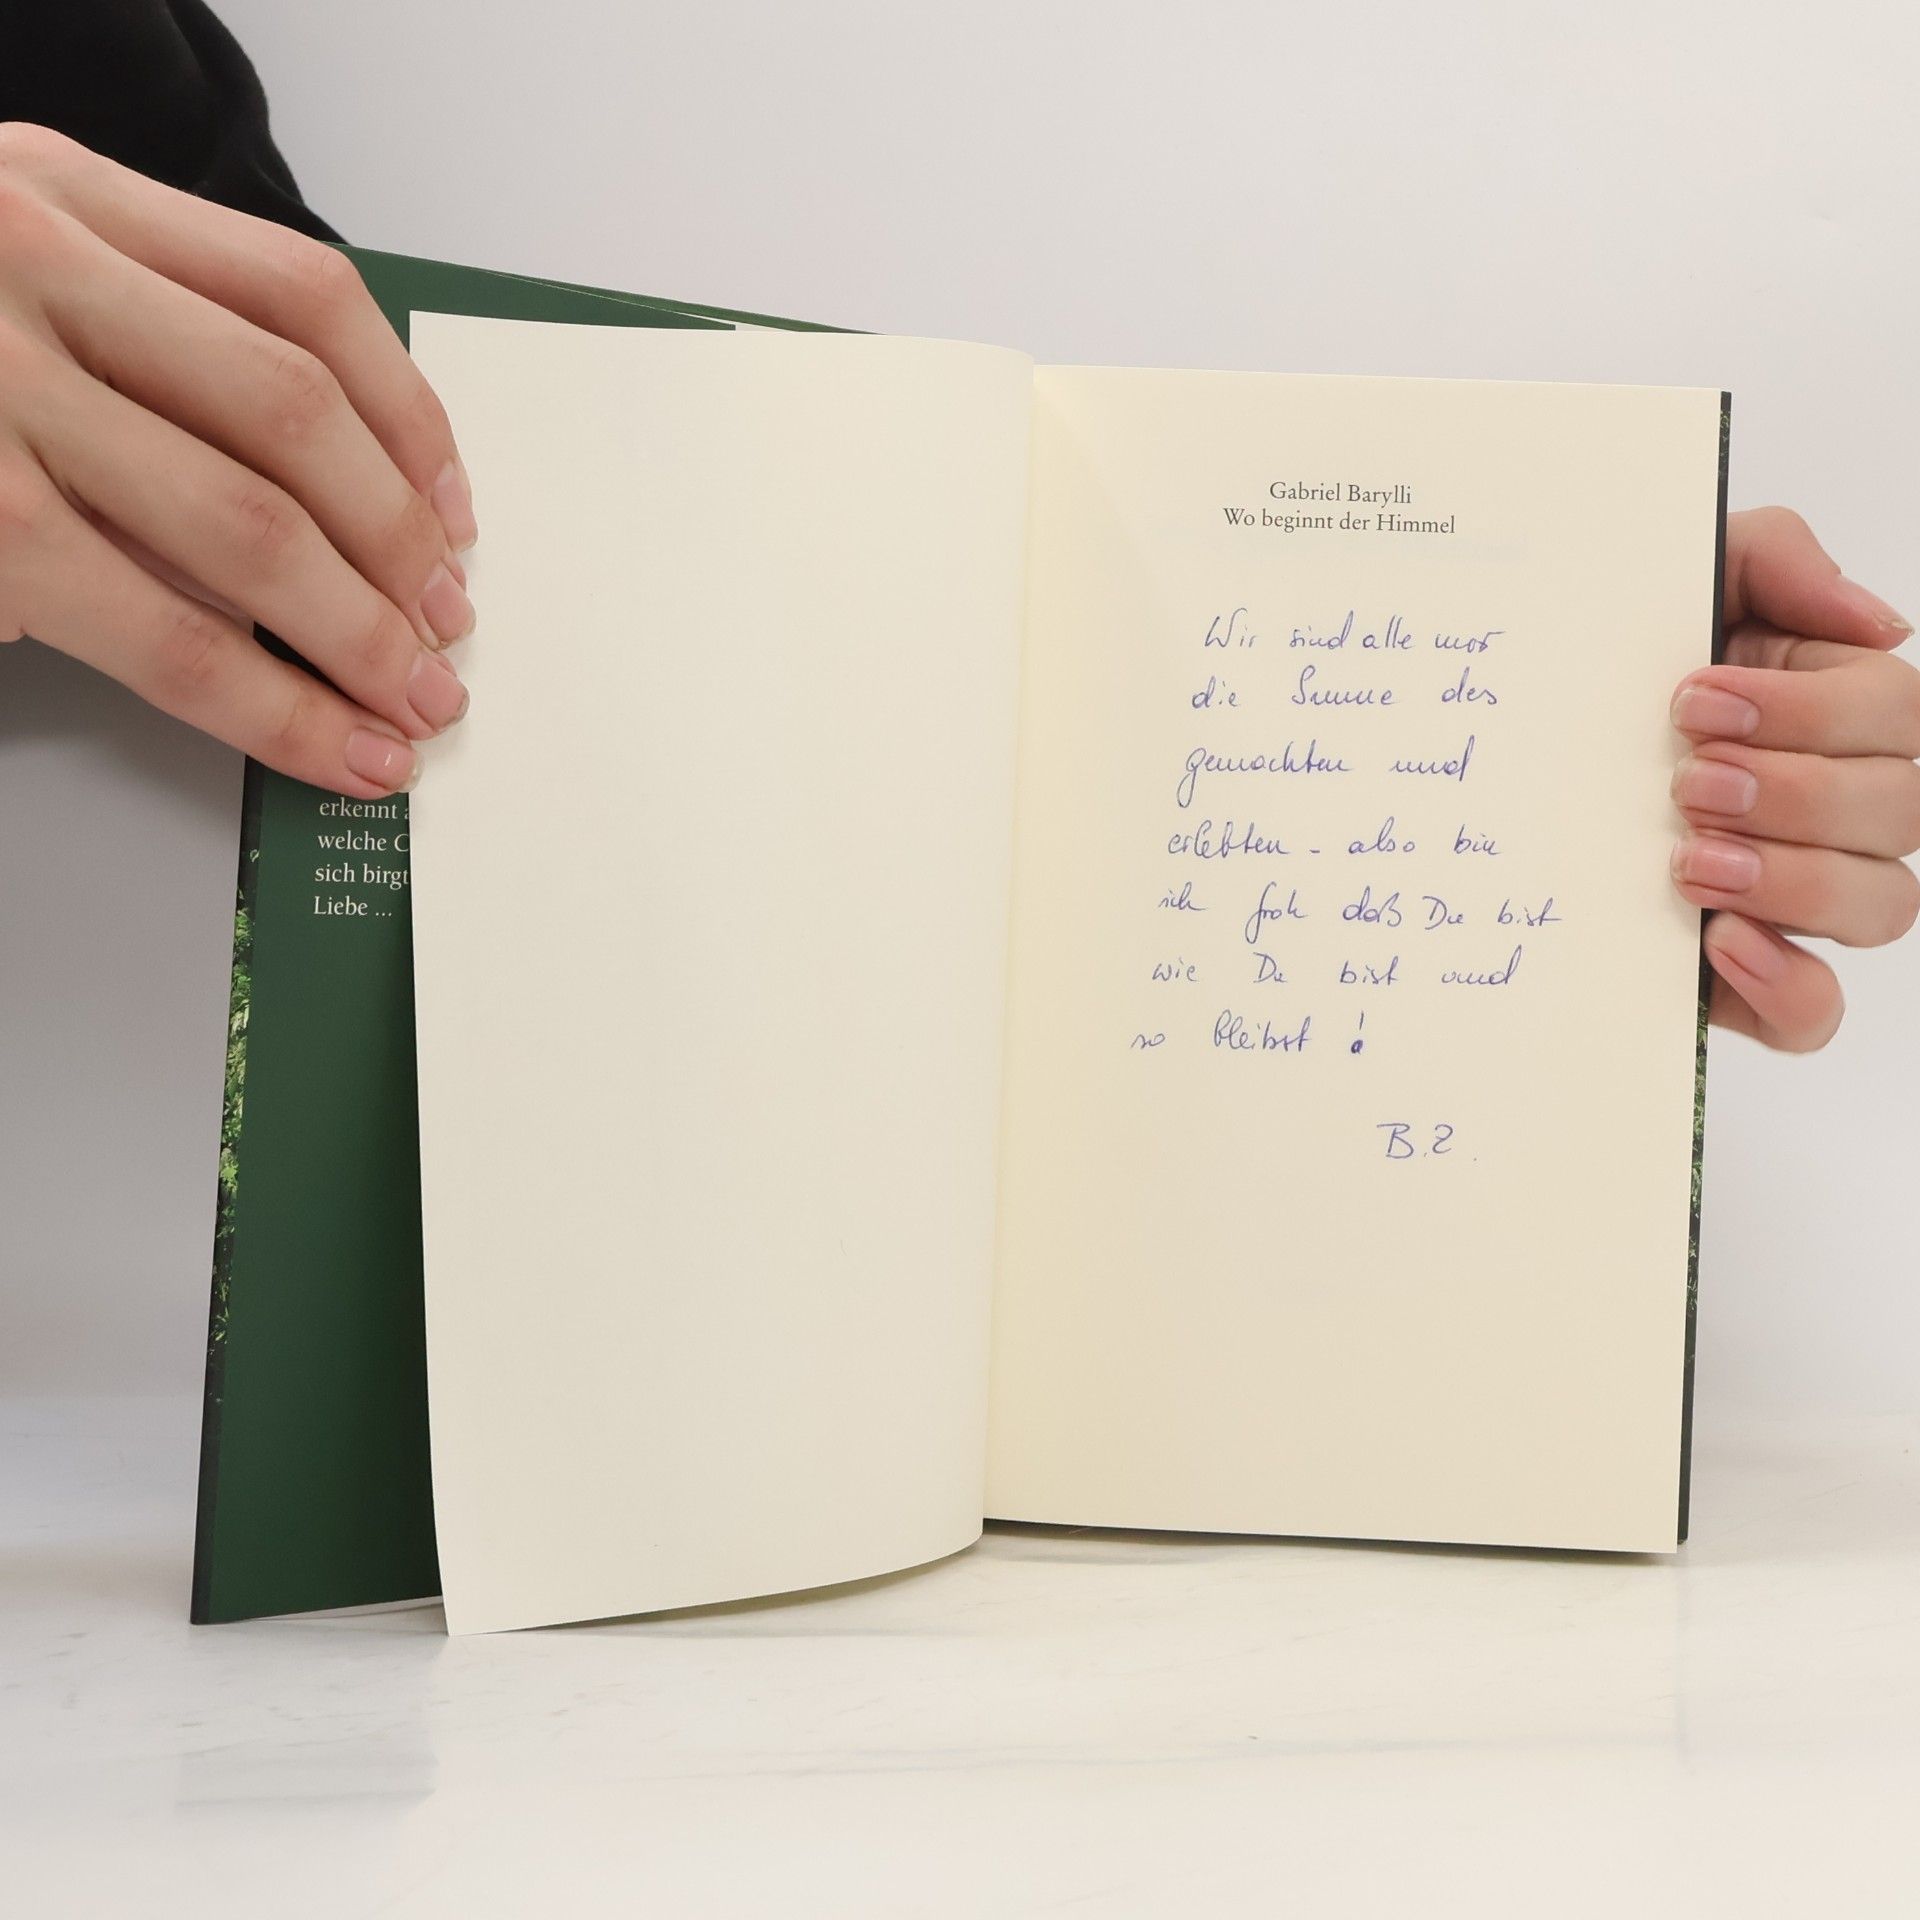 erkennt
welche
sich birgt
Liebe ...
Gabriel Barylli
Wo beginnt der Himmel
Wir sind alle
die Summe des
gemachten und
erlebten - also bin
ich froh daß Du bist
wie Du bist und
so bleibst !
B.Z.